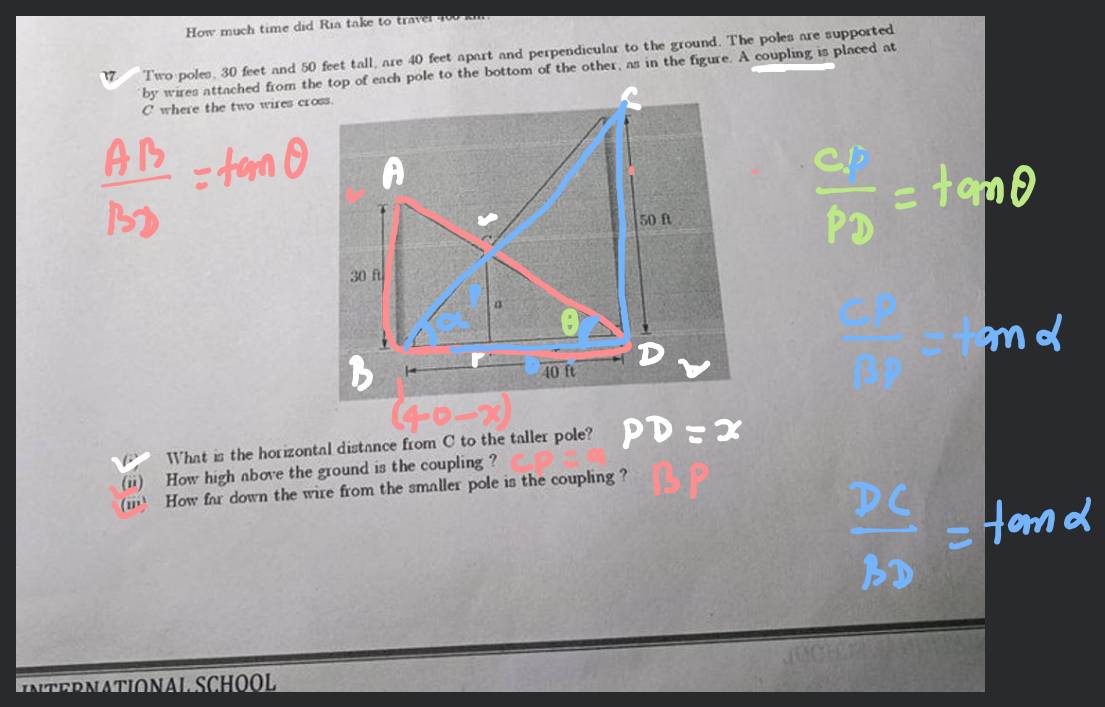 How much time did Ria take to travel 400 km.
17. Two poles, 30 feet and 50 feet tall, are 40 feet apart and perpendicular to the ground. The poles are supported
by wires attached from the top of each pole to the bottom of the other, as in the figure. A coupling is placed at
C where the two wires cross.
AB/BD = tan θ
A
C
C
30 ft
50 ft
a
α
θ
B
P
D
40 ft
(40-x)
CP/PD = tan θ
CP/BP = tan α
DC/BD = tan α
(i) What is the horizontal distance from C to the taller pole? PD = x
(ii) How high above the ground is the coupling ? CP = a
(iii) How far down the wire from the smaller pole is the coupling ? BP
INTERNATIONAL SCHOOL